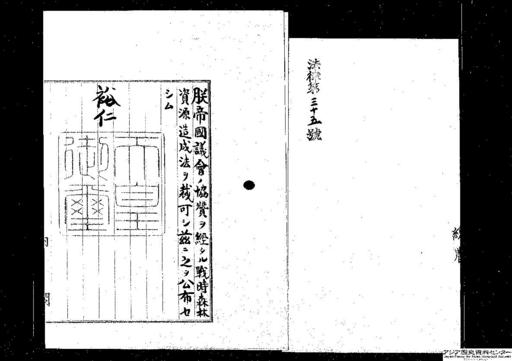 法律第三十五號
朕帝國議會ノ協贊ヲ經タル戰時森林
資源造成法ヲ裁可シ茲ニ之ヲ公布セ
シム
裕仁
天皇
御璽
内閣
アジア歴史資料センター